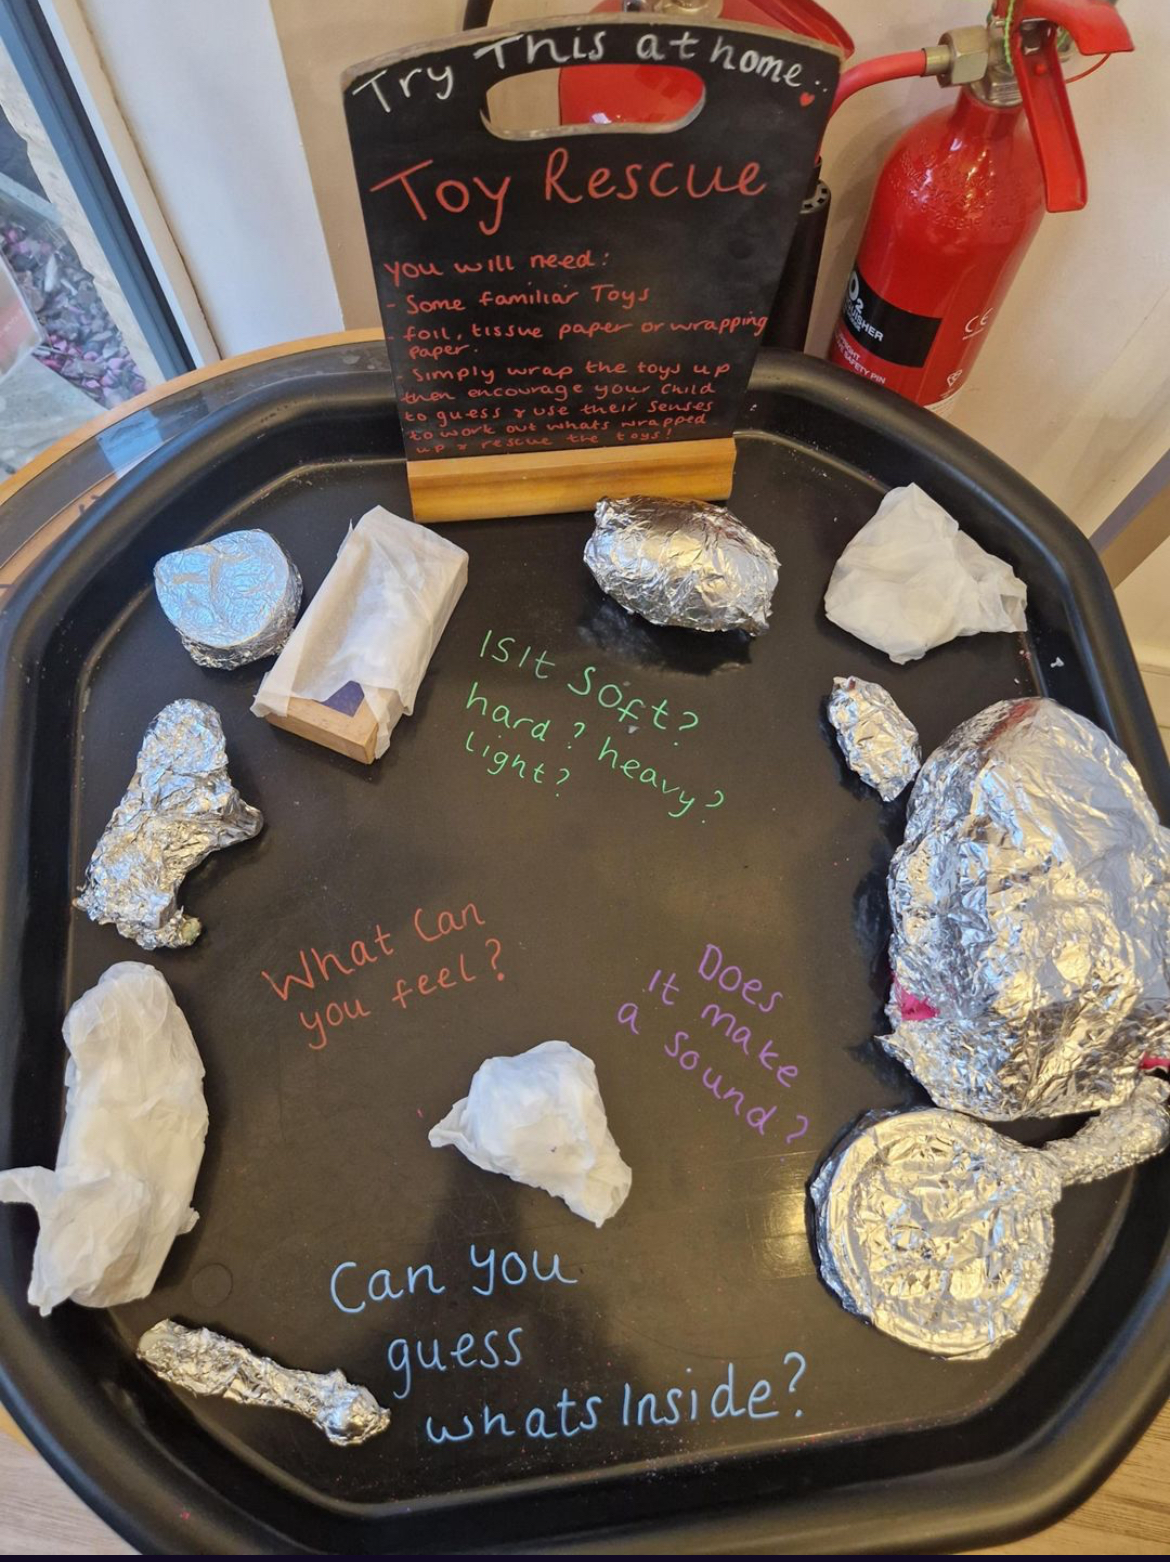 Try This at home:
Toy Rescue
you will need:
- Some familiar Toys
- foil, tissue paper or wrapping
paper.
Simply wrap the toys up
then encourage your child
to guess & use their senses
to work out whats wrapped
up & rescue the toys!
ISIt Soft?
hard? heavy?
light?
What Can
you feel?
Does
It make
a sound?
Can you
guess
whats Inside?
CE